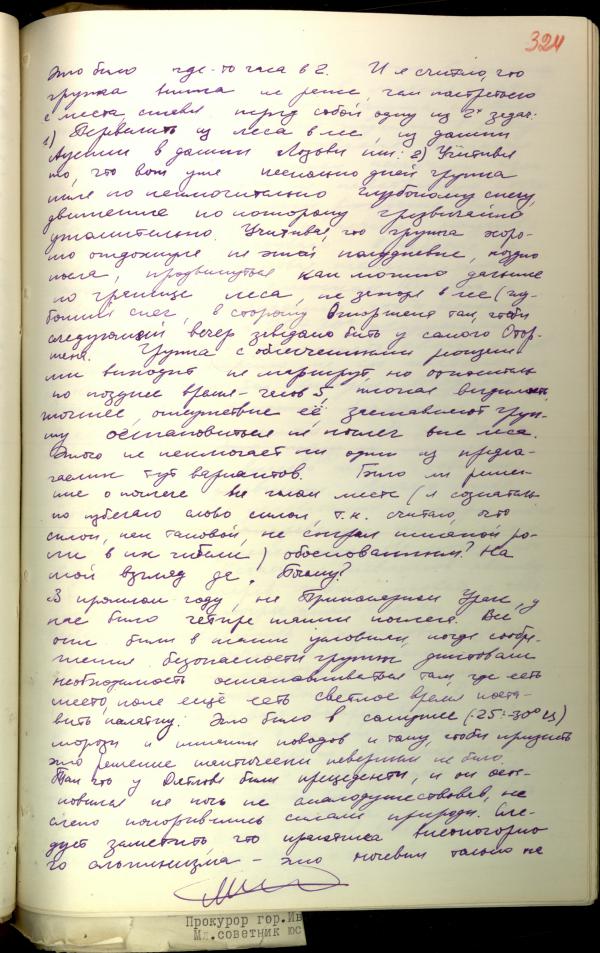 324
Это было где-то часа в 2. И я считаю, что
группа вышла не ранее, чем
с места ставя перед собой одну из 2х задач:
1) Перевалить из леса в лес, из долины
Ауспии в долину Лозьвы или: 2) Учитывая
то, что вот уже несколько дней группа
шла по исключительно глубокому снегу,
движение по которому чрезвычайно
утомительно. Учитывая, что группа хоро-
шо отдохнула на этой полудневке, поздно
после, продвинуться как можно дальше
по границе леса, не заходя в лес (глу-
бокий снег, в сторону Отортена так, чтобы
следующий вечер заведомо быть у самого Отор-
тена. Группа с облегченными рюкзака-
ми выходит на маршрут, но относитель-
но позднее время - часов 5, плохая видимость,
точнее, отсутствие её, заставляют груп-
пу остановиться на ночлег вне леса.
Этого не исключает ни один из предла-
гаемых тут вариантов. Было ли реше-
ние о ночлеге на голом месте (я сознатель-
но избегаю слово склон, т.к. считаю, что
склон, как таковой, не сыграл никакой ро-
ли в их гибели) обоснованным? На
мой взгляд да! Почему?
В прошлом году, на Приполярном Урале, у
нас было четыре таких ночлега. Все
они были в таких условиях, когда сообра-
жения безопасности группы диктовали
необходимость останавливаться там, где есть
место, пока ещё есть светлое время поста-
вить палатку. Это было в (-25:-30° Ц)
морозы и никаких поводов к тому, чтобы признать
это решение тактически неверным не было.
Так что у Дятлова были прецеденты, и он оста-
новился на ночь не смалодушествовав, не
слепо покорившись силами природы. Сле-
дует заметить что практика высокогорно-
го альпинизма - это ночевки только на
Прокурор гор.Ив
Мл.советник юс